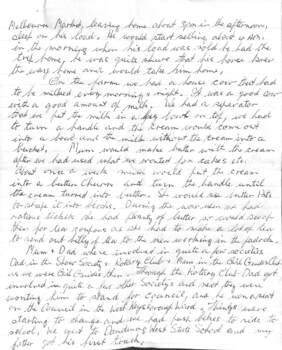 Melbourne Market, leaving home about 3pm in the afternoon,
sleep on his load. He would start selling about 4 AM.
in the morning when his load was sold he had the
trip home, he was quite sure that his horses knew
the way home and would take him home.
On the farm we had a house cow that had
to be milked every morning & night. It was a good cow
with a good amount of milk. We had a seperator
that we put the milk in a big bowl on top, we had
to turn a handle and the cream would come out
into a bowl and the milk without the cream into a
bucket. Mum would make butter with the cream
after we had used what we wanted for cakes etc.
About once a week mum would put the cream
into a butter churn and turn the handle until
the cream turned into butter. She would use butter bats
to shape it into blocks. During the war when we had
rations tickets she had plenty of butter so would swap
them for tea coupons as she had to make a lot of tea
to send out billy of tea to the men working in the paddock.
Mum & Dad where involved in quite a few societies
Dad in the Show Society & Rotary Club & Mum in the Girl Guides
as we were Girl Guides then. Through the Rotary Club Dad got
involved in quite a few other Society's and next they were
wanting him to stand for council, and he was
on the Council in the Ward. Things were
starting to change and we had push bikes to ride to
school, he went to Dandenong West State School and my
father got his first truck.